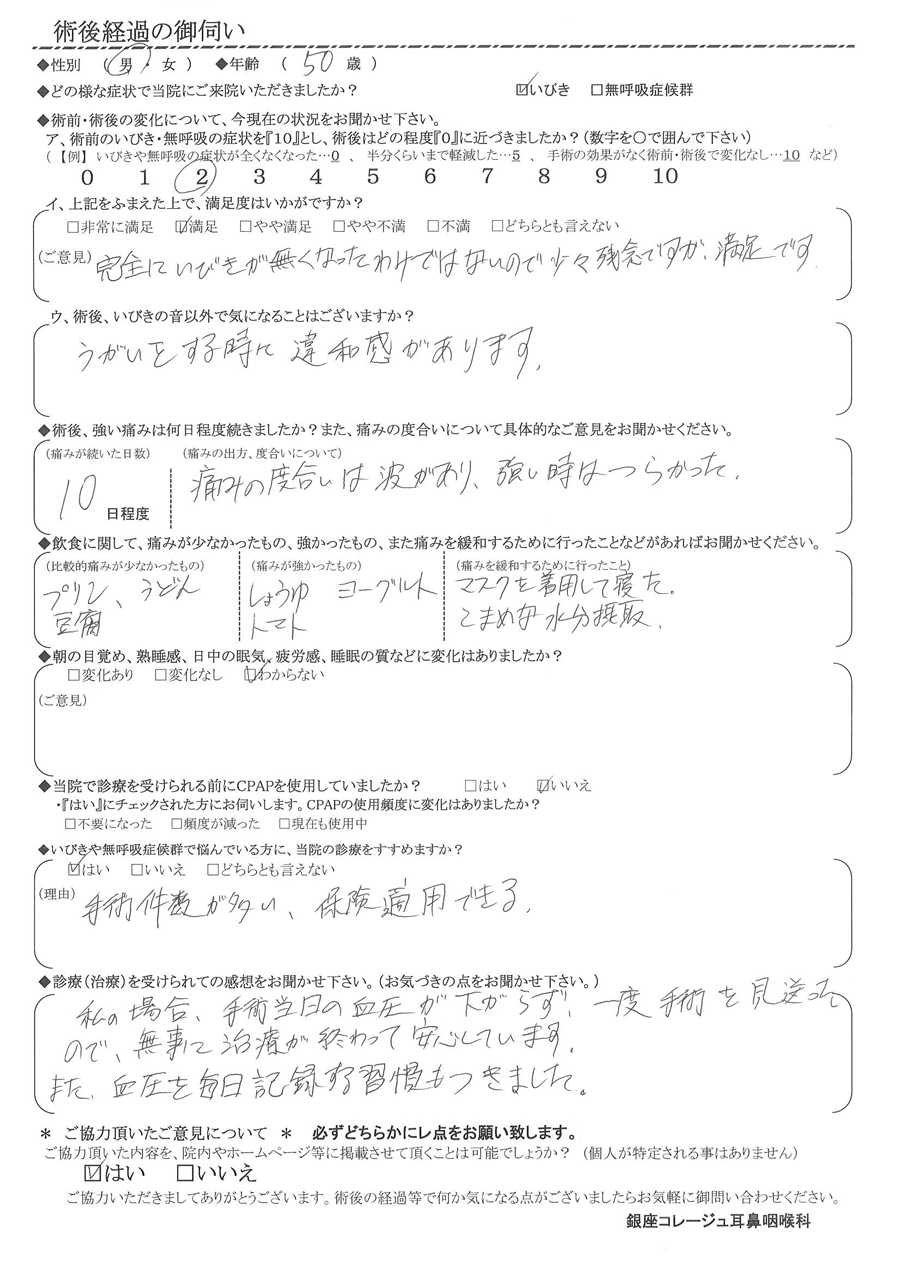 術後経過の御伺い
◆性別 (男・女) ◆年齢 (50歳)
◆どの様な症状で当院にご来院いただきましたか? ☑いびき □無呼吸症候群
◆術前・術後の変化について、今現在の状況をお聞かせ下さい。
ア、術前のいびき・無呼吸の症状を『10』とし、術後はどの程度『0』に近づきましたか?(数字を〇で囲んで下さい)
(【例】いびきや無呼吸の症状が全くなくなった…0 、 半分くらいまで軽減した…5 、 手術の効果がなく術前・術後で変化なし…10 など)
0 1 2 3 4 5 6 7 8 9 10
イ、上記をふまえた上で、満足度はいかがですか?
□非常に満足 ☑満足 □やや満足 □やや不満 □不満 □どちらとも言えない
(ご意見) 完全にいびきが無くなったわけではないので少々残念ですが、満足です.
ウ、術後、いびきの音以外で気になることはございますか?
うがいをする時に違和感があります.
◆術後、強い痛みは何日程度続きましたか?また、痛みの度合いについて具体的なご意見をお聞かせください。
(痛みが続いた日数) (痛みの出方、度合いについて)
10日程度 痛みの度合いは波があり、強い時はつらかった.
◆飲食に関して、痛みが少なかったもの、強かったもの、また痛みを緩和するために行ったことなどがあればお聞かせください。
(比較的痛みが少なかったもの) (痛みが強かったもの) (痛みを緩和するために行ったこと)
プリン、うどん しょうゆ ヨーグルト マスクを着用して寝た。
豆腐 トマト こまめな水分摂取.
◆朝の目覚め、熟睡感、日中の眠気、疲労感、睡眠の質などに変化はありましたか?
□変化あり □変化なし ☑わからない
(ご意見)
◆当院で診療を受けられる前にCPAPを使用していましたか? □はい ☑いいえ
・『はい』にチェックされた方にお伺いします。CPAPの使用頻度に変化はありましたか?
□不要になった □頻度が減った □現在も使用中
◆いびきや無呼吸症候群で悩んでいる方に、当院の診療をすすめますか?
☑はい □いいえ □どちらとも言えない
(理由) 手術件数が多い、保険適用できる.
◆診療(治療)を受けられての感想をお聞かせ下さい。(お気づきの点をお聞かせ下さい。)
私の場合、手術当日の血圧が下がらず、一度手術を見送った
ので、無事に治療が終わって安心しています.
また、血圧を毎日記録する習慣もつきました。
＊ ご協力頂いたご意見について ＊ 必ずどちらかにレ点をお願い致します。
ご協力頂いた内容を、院内やホームページ等に掲載させて頂くことは可能でしょうか? (個人が特定される事はありません)
☑はい □いいえ
ご協力いただきましてありがとうございます。術後の経過等で何か気になる点がございましたらお気軽に御問い合わせください。
銀座コレージュ耳鼻咽喉科